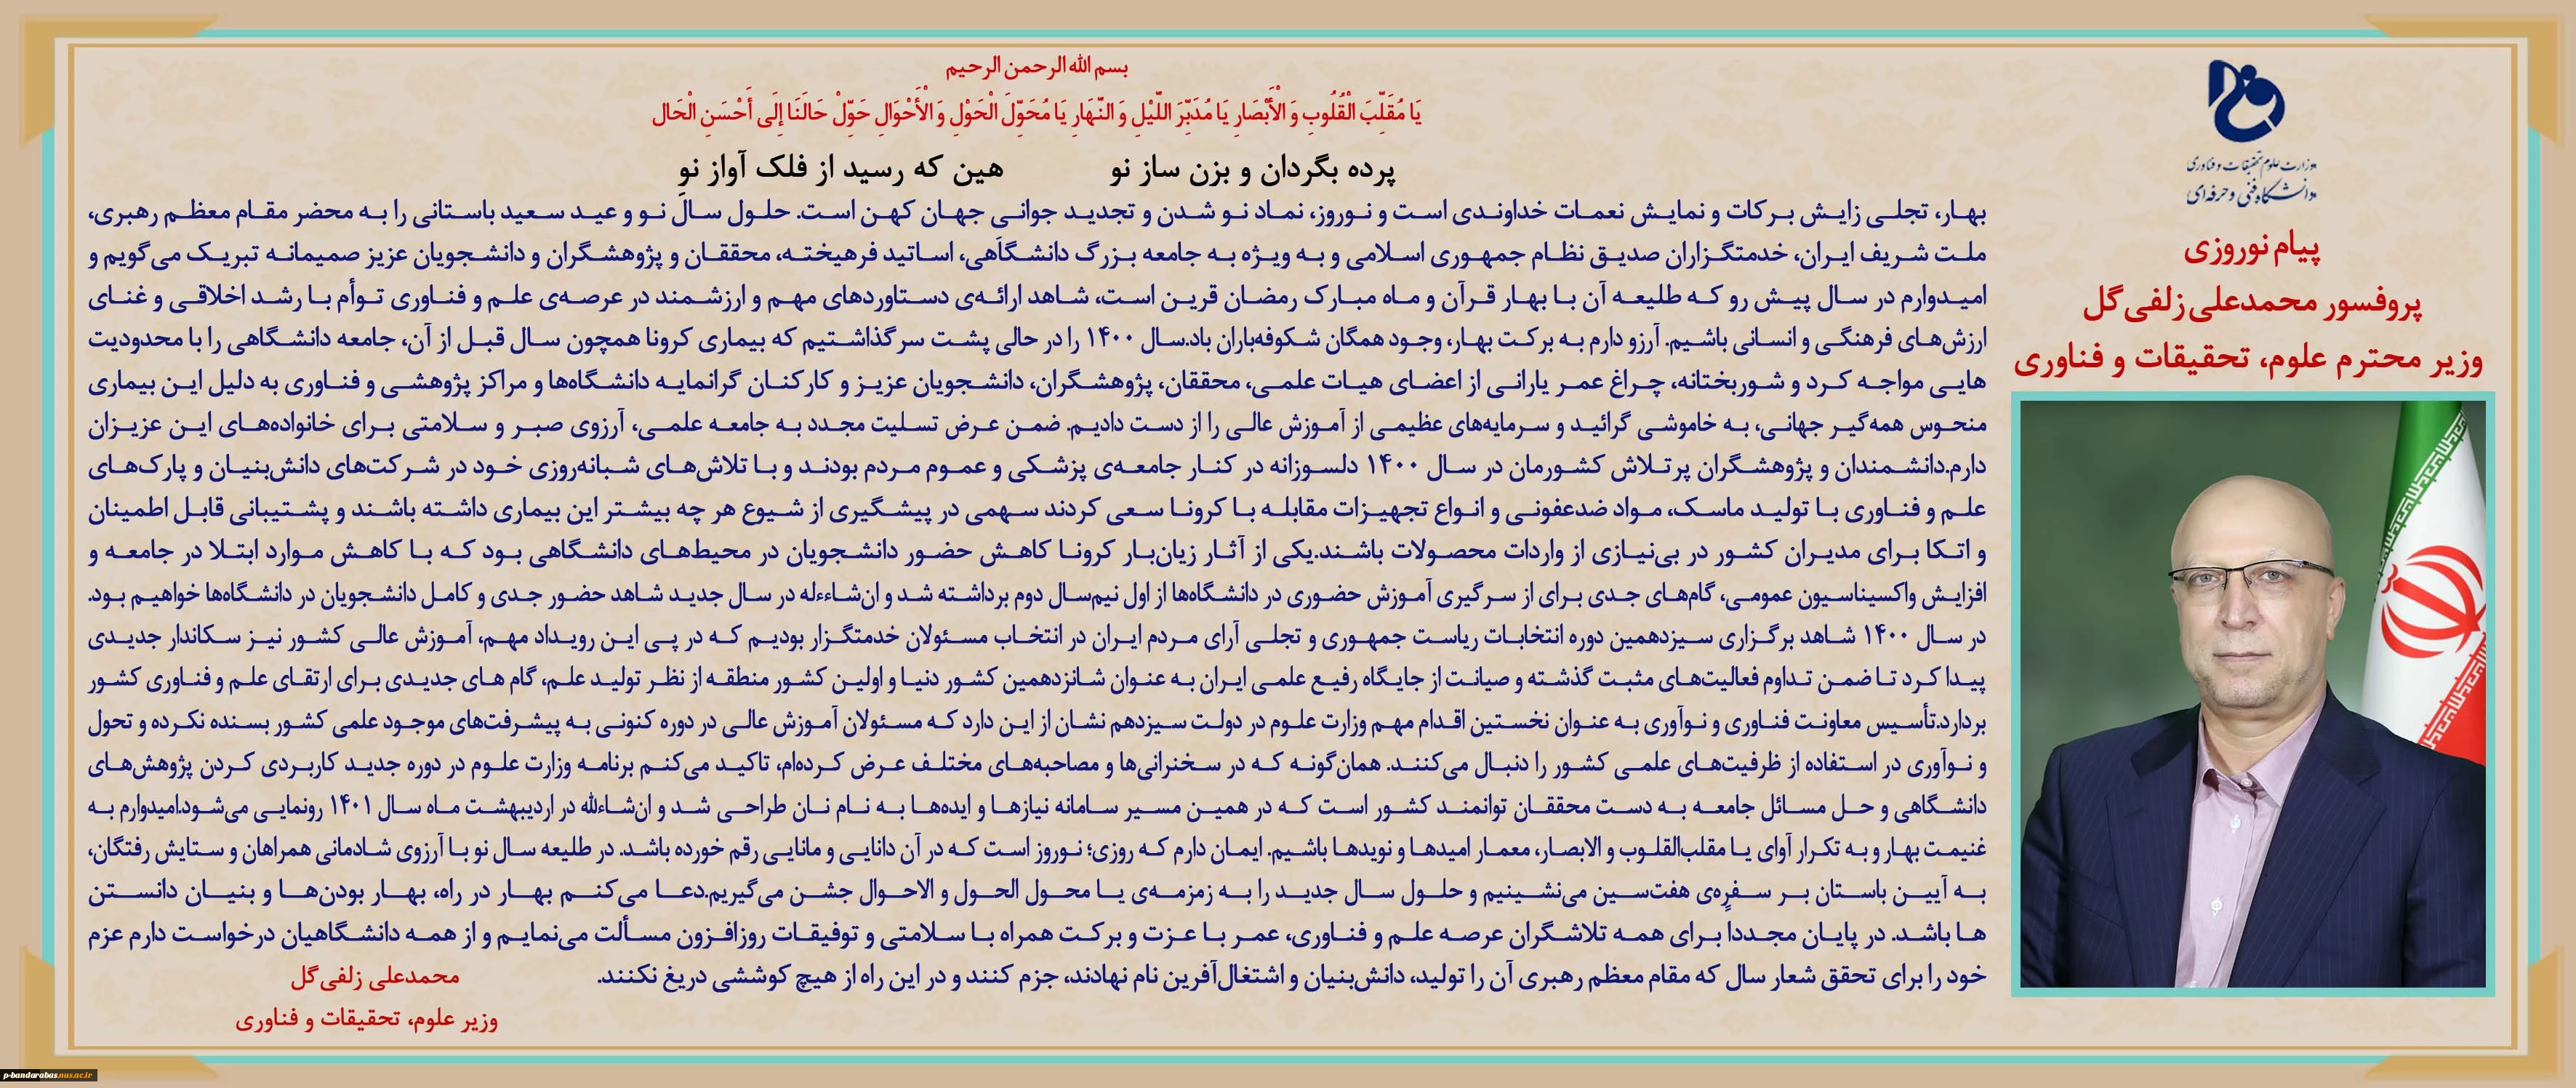 وزارت علوم تحقیقات و فناوری
دانشگاه فنی و حرفه‌ای
پیام نوروزی
پروفسور محمدعلی زلفی‌گل
وزیر محترم علوم، تحقیقات و فناوری
بسم الله الرحمن الرحیم
یَا مُقَلِّبَ الْقُلُوبِ وَ الْأَبْصَارِ یَا مُدَبِّرَ اللَّیْلِ وَ النَّهَارِ یَا مُحَوِّلَ الْحَوْلِ وَ الْأَحْوَالِ حَوِّلْ حَالَنَا إِلَی أَحْسَنِ الْحَالِ
پرده بگردان و بزن ساز نو هین که رسید از فلک آواز نو
بهار، تجلی زایش برکات و نمایش نعمات خداوندی است و نوروز، نماد نو شدن و تجدید جوانی جهان کهن است. حلول سال نو و عید سعید باستانی را به محضر مقام معظم رهبری،
ملت شریف ایران، خدمتگزاران صدیق نظام جمهوری اسلامی و به ویژه به جامعه بزرگ دانشگاهی، اساتید فرهیخته، محققان و پژوهشگران و دانشجویان عزیز صمیمانه تبریک می‌گویم و
امیدوارم در سال پیش رو که طلیعه آن با بهار قرآن و ماه مبارک رمضان قرین است، شاهد ارائه‌ی دستاوردهای مهم و ارزشمند در عرصه‌ی علم و فناوری توأم با رشد اخلاقی و غنای
ارزش‌های فرهنگی و انسانی باشیم. آرزو دارم به برکت بهار، وجود همگان شکوفه‌باران باد.سال ۱۴۰۰ را در حالی پشت سر گذاشتیم که بیماری کرونا همچون سال قبل از آن، جامعه دانشگاهی را با محدودیت
هایی مواجه کرد و شوربختانه، چراغ عمر یارانی از اعضای هیات علمی، محققان، پژوهشگران، دانشجویان عزیز و کارکنان گرانمایه دانشگاه‌ها و مراکز پژوهشی و فناوری به دلیل این بیماری
منحوس همه‌گیر جهانی، به خاموشی گرائید و سرمایه‌های عظیمی از آموزش عالی را از دست دادیم. ضمن عرض تسلیت مجدد به جامعه علمی، آرزوی صبر و سلامتی برای خانواده‌های این عزیزان
دارم.دانشمندان و پژوهشگران پرتلاش کشورمان در سال ۱۴۰۰ دلسوزانه در کنار جامعه‌ی پزشکی و عموم مردم بودند و با تلاش‌های شبانه‌روزی خود در شرکت‌های دانش‌بنیان و پارک‌های
علم و فناوری با تولید ماسک، مواد ضدعفونی و انواع تجهیزات مقابله با کرونا سعی کردند سهمی در پیشگیری از شیوع هر چه بیشتر این بیماری داشته باشند و پشتیبانی قابل اطمینان
و اتکا برای مدیران کشور در بی‌نیازی از واردات محصولات باشند.یکی از آثار زیان‌بار کرونا کاهش حضور دانشجویان در محیط‌های دانشگاهی بود که با کاهش موارد ابتلا در جامعه و
افزایش واکسیناسیون عمومی، گام‌های جدی برای از سرگیری آموزش حضوری در دانشگاه‌ها از اول نیم‌سال دوم برداشته شد و ان‌شاءءله در سال جدید شاهد حضور جدی و کامل دانشجویان در دانشگاه‌ها خواهیم بود.
در سال ۱۴۰۰ شاهد برگزاری سیزدهمین دوره انتخابات ریاست جمهوری و تجلی آرای مردم ایران در انتخاب مسئولان خدمتگزار بودیم که در پی این رویداد مهم، آموزش عالی کشور نیز سکاندار جدیدی
پیدا کرد تا ضمن تداوم فعالیت‌های مثبت گذشته و صیانت از جایگاه رفیع علمی ایران به عنوان شانزدهمین کشور دنیا و اولین کشور منطقه از نظر تولید علم، گام های جدیدی برای ارتقای علم و فناوری کشور
بردارد.تأسیس معاونت فناوری و نوآوری به عنوان نخستین اقدام مهم وزارت علوم در دولت سیزدهم نشان از این دارد که مسئولان آموزش عالی در دوره کنونی به پیشرفت‌های موجود علمی کشور بسنده نکرده و تحول
و نوآوری در استفاده از ظرفیت‌های علمی کشور را دنبال می‌کنند. همان‌گونه که در سخنرانی‌ها و مصاحبه‌های مختلف عرض کرده‌ام، تاکید می‌کنم برنامه وزارت علوم در دوره جدید کاربردی کردن پژوهش‌های
دانشگاهی و حل مسائل جامعه به دست محققان توانمند کشور است که در همین مسیر سامانه نیازها و ایده‌ها به نام نان طراحی شد و ان‌شاءالله در اردیبهشت ماه سال ۱۴۰۱ رونمایی می‌شود.امیدوارم به
غنیمت بهار و به تکرار آوای یا مقلب‌القلوب و الابصار، معمار امیدها و نویدها باشیم. ایمان دارم که روزی؛ نوروز است که در آن دانایی و مانایی رقم خورده باشد. در طلیعه سال نو با آرزوی شادمانی همراهان و ستایش رفتگان،
به آیین باستان بر سفره‌ی هفت‌سین می‌نشینیم و حلول سال جدید را به زمزمه‌ی یا محول الحول و الاحوال جشن می‌گیریم.دعا می‌کنم بهار در راه، بهار بودن‌ها و بنیان دانستن
ها باشد. در پایان مجددا برای همه تلاشگران عرصه علم و فناوری، عمر با عزت و برکت همراه با سلامتی و توفیقات روزافزون مسألت می‌نمایم و از همه دانشگاهیان درخواست دارم عزم
خود را برای تحقق شعار سال که مقام معظم رهبری آن را تولید، دانش‌بنیان و اشتغال‌آفرین نام نهادند، جزم کنند و در این راه از هیچ کوششی دریغ نکنند.
محمدعلی زلفی‌گل
وزیر علوم، تحقیقات و فناوری
p-bandarabas.nus.ac.ir